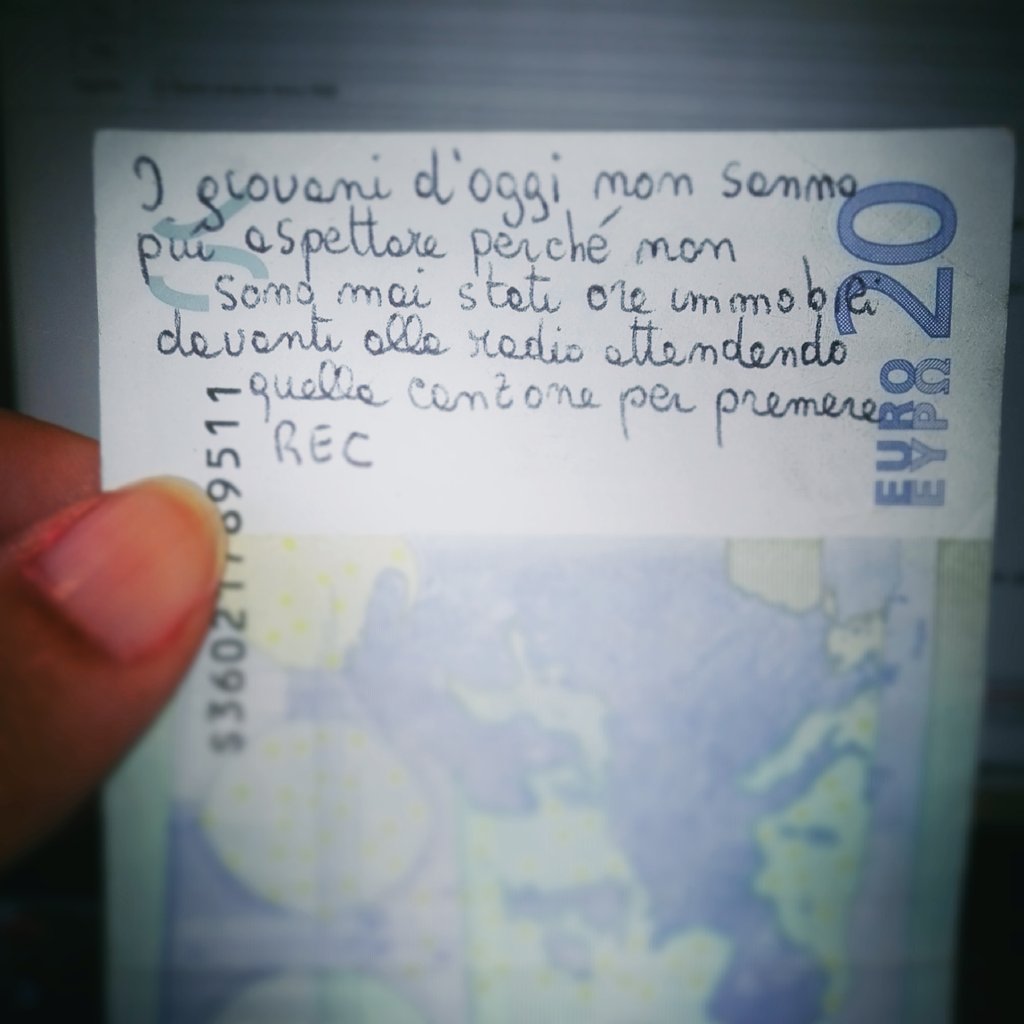 I giovani d'oggi non sanno
più aspettare perché non
sono mai stati ore immobili
davanti alla radio attendendo
quella canzone per premere
REC
20
EURO
ΕΥΡΩ